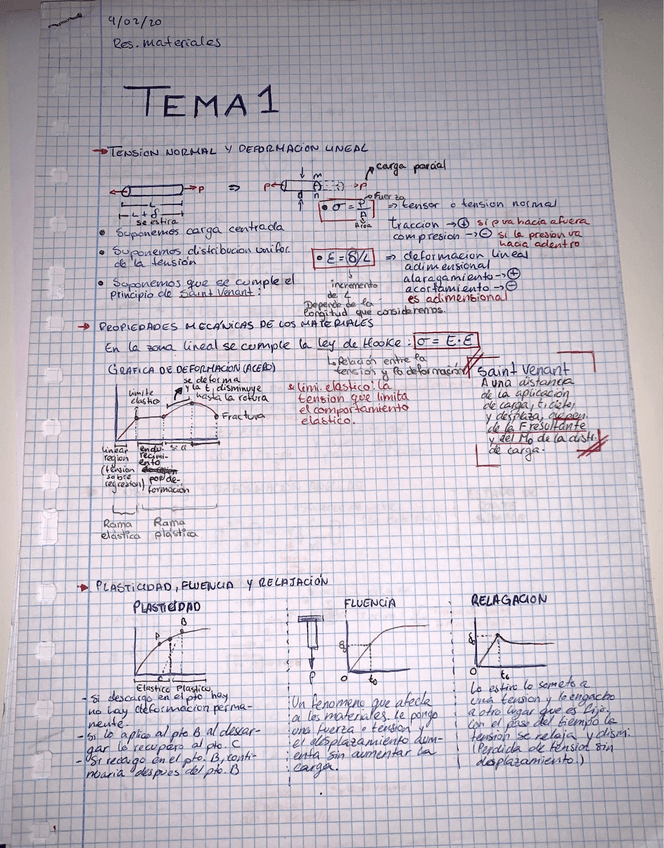 4/02/20
Res. materiales
TEMA 1
→ TENSION NORMAL Y DEFORMACION LINEAL
P
L
L + δ
se estira
⇒
P
m
n
P
carga parcial
• Suponemos carga centrada
• Suponemos distribucion unifor.
de la tensión
• Suponemos que se cumple el
principio de Saint Venant:
Fuerza
• σ = P/A
Area
⇒ tensor o tension normal
traccion → ⊕ si p va hacia afuera
compresion → ⊖ si la presion va
hacia adentro
• Ɛ = δ/L
⇒ deformacion lineal
adimensional
alargamiento → ⊕
acortamiento → ⊖
es adimensional
incremento
de L
Depende de la
longitud que consideremos.
→ PROPIEDADES MECÁNICAS DE LOS MATERIALES
En la zona lineal se cumple la ley de Hooke: σ = E·Ɛ
Relacion entre la
tension y la deformación
GRAFICA DE DEFORMACION (ACERO)
se deforma
y la t. disminuye
hasta la rotura
limite
elastico
Fractura
linear
region
(tension
sobre
regresion)
endu-
recimi-
ento
por de-
formación
Rama
elástica
Rama
plástica
* limi. elastico: la
tension que limita
el comportamiento
elastico.
Saint Venant
A una distancia
de la aplicacion
de carga, t, def,
y desplaza, depen.
de la F resultante
y el Mo de la distri.
de carga.
→ PLASTICIDAD, FLUENCIA Y RELAJACIÓN
PLASTICIDAD
A
B
C
Elastico Plastico
- Si descargo en el pto A hay
no hay deformacion perma-
nente.
- Si lo aplico al pto B al descar-
gar lo recupero al pto. C
- Si recargo en el pto. B, conti-
nuaria despues del pto. B
FLUENCIA
P
0
to
Un fenomeno que afecta
a los materiales. le pongo
una fuerza o tension y
el desplazamiento aum-
enta sin aumentar la
carga.
RELAGACION
0
to
Lo estiro lo someto a
una tension y lo engacho
a otro lugar que es fijo,
con el paso del tiempo la
tension se relaja y dismi.
(Perdida de tension sin
desplazamiento.)
1